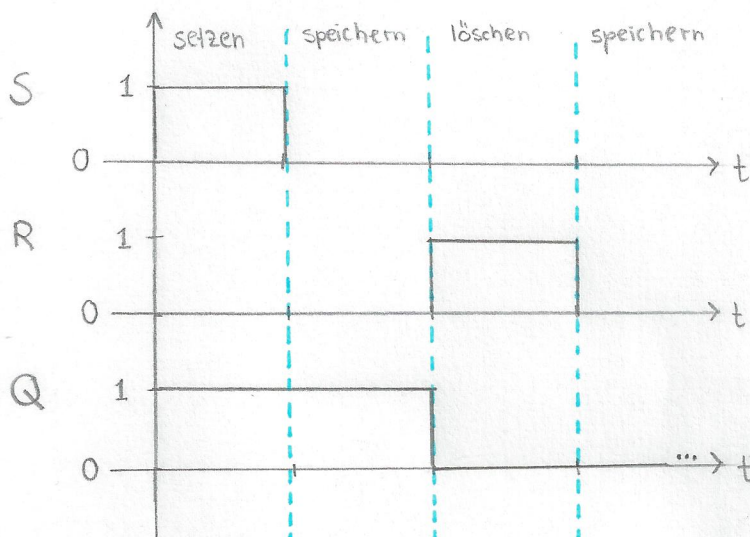 setzen speichern löschen speichern
S 1
0 t
R 1
0 t
Q 1
0 ... t